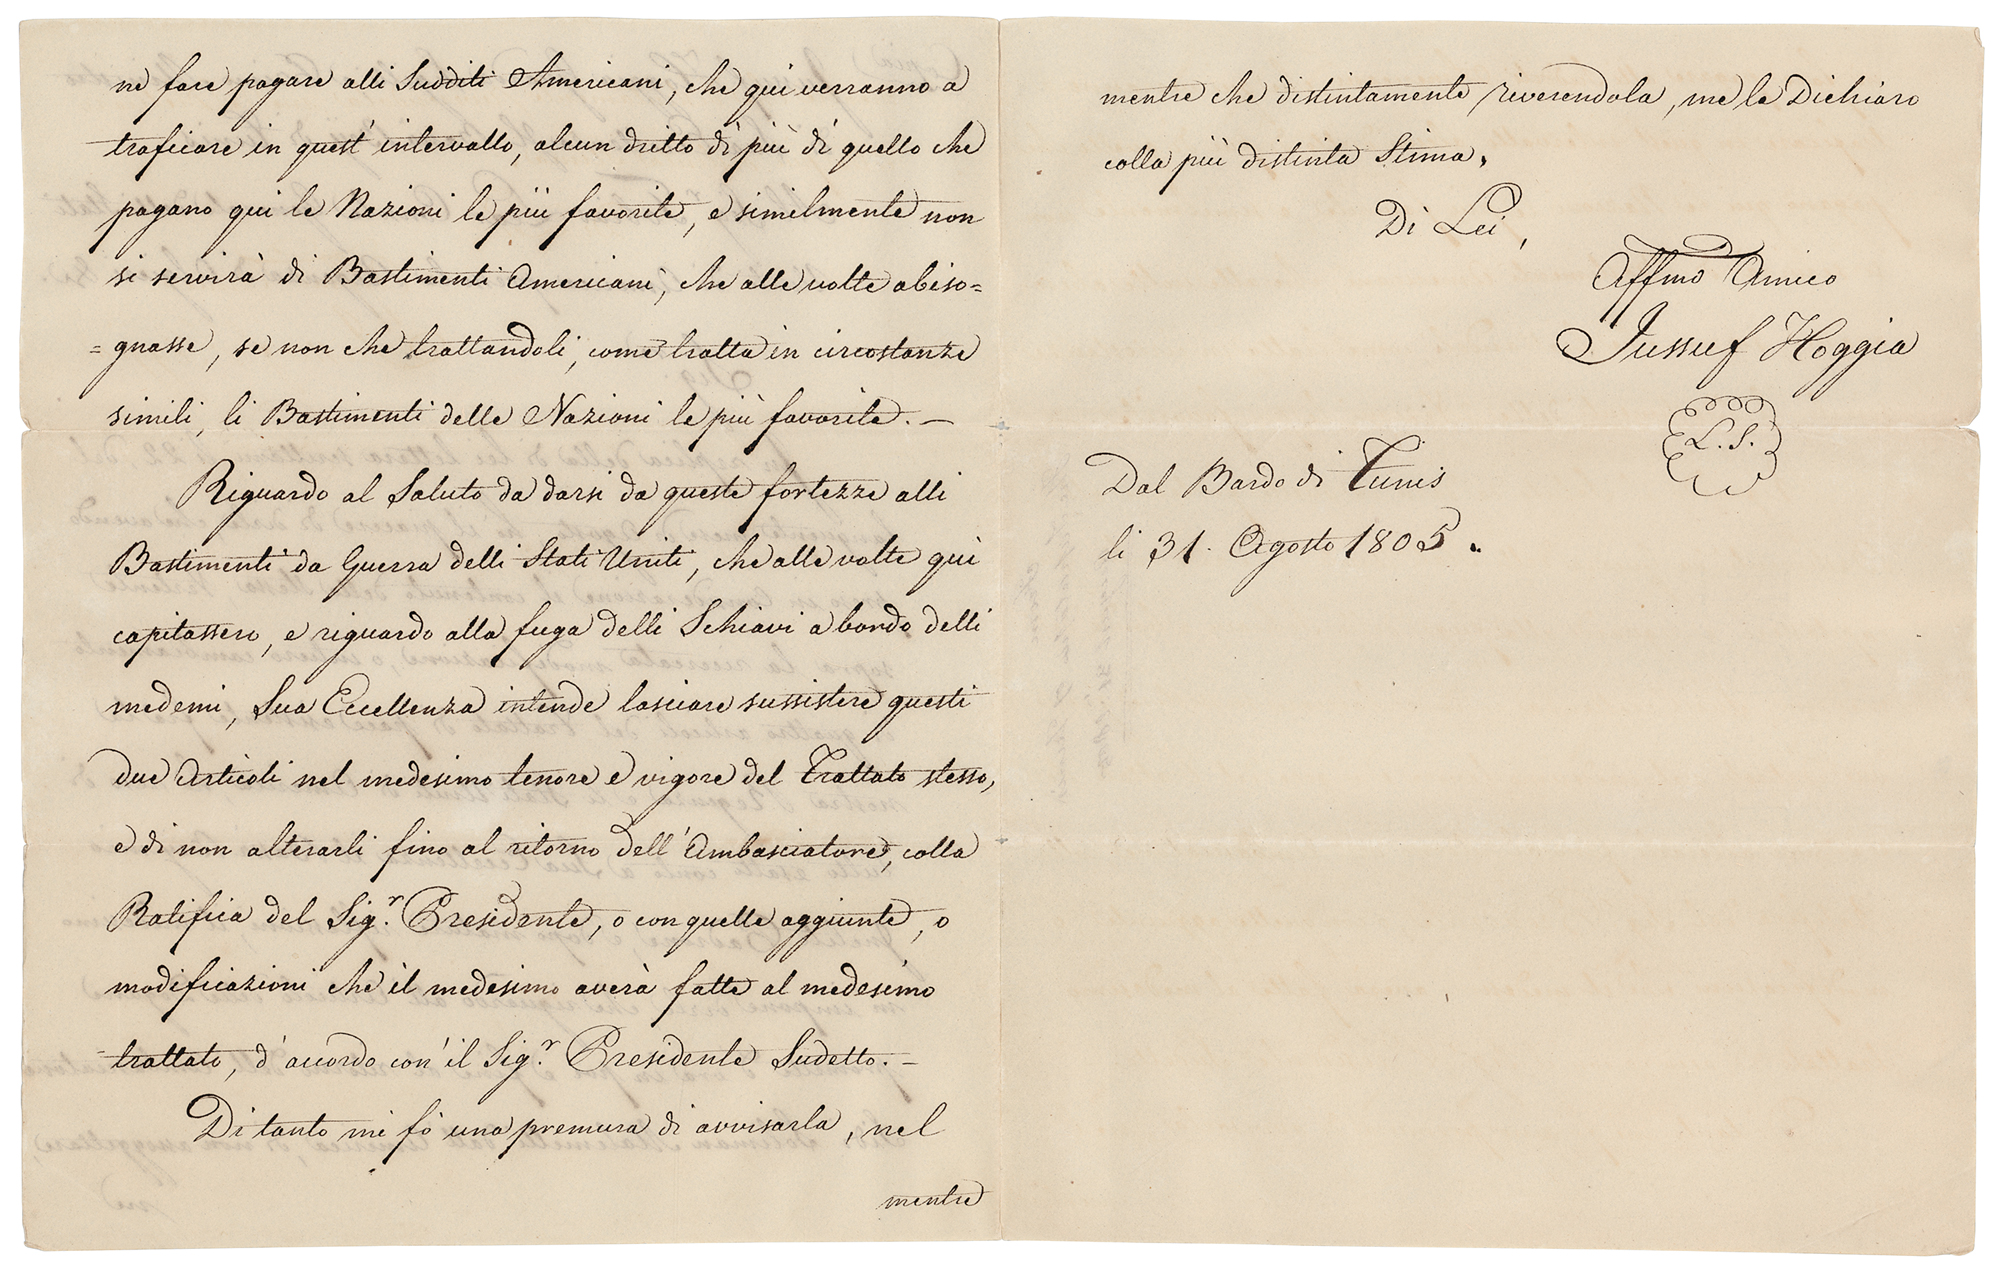 ne fare pagare alli Sudditi Americani, che qui verranno a
traficare in quest' intervallo, alcun dritto di più di quello che
pagano qui le Nazioni le più favorite, e similmente non
si servirà di Bastimenti Americani, che alle volte abiso=
=gnasse, se non che trattandoli, come tratta in circostanze
simili, li Bastimenti delle Nazioni le più favorite. —
Riguardo al Saluto da darsi da queste fortezze alli
Bastimenti da Guerra delli Stati Uniti, che alle volte qui
capitassero, e riguardo alla fuga delli Schiavi a bordo delli
medemi, Sua Eccellenza intende lasciare sussistere questi
due Articoli nel medesimo tenore e vigore del Trattato stesso,
e di non alterarli fino al ritorno dell' Ambasciatore, colla
Ratifica del Sig.r Presidente, o con quelle aggiunte, o
modificazioni che il medesimo averà fatte al medesimo
trattato, d' accordo con' il Sig.r Presidente Sudetto. —
Di tanto mi fò una premura di avvisarla, nel
mentre
mentre che distintamente riverendola, me le Dichiaro
colla più distinta Stima.
Di Lei,
Affmo Amico
Jussuf Hoggia
L. S.
Dal Bardo di Tunis
li 31. Agosto 1805.